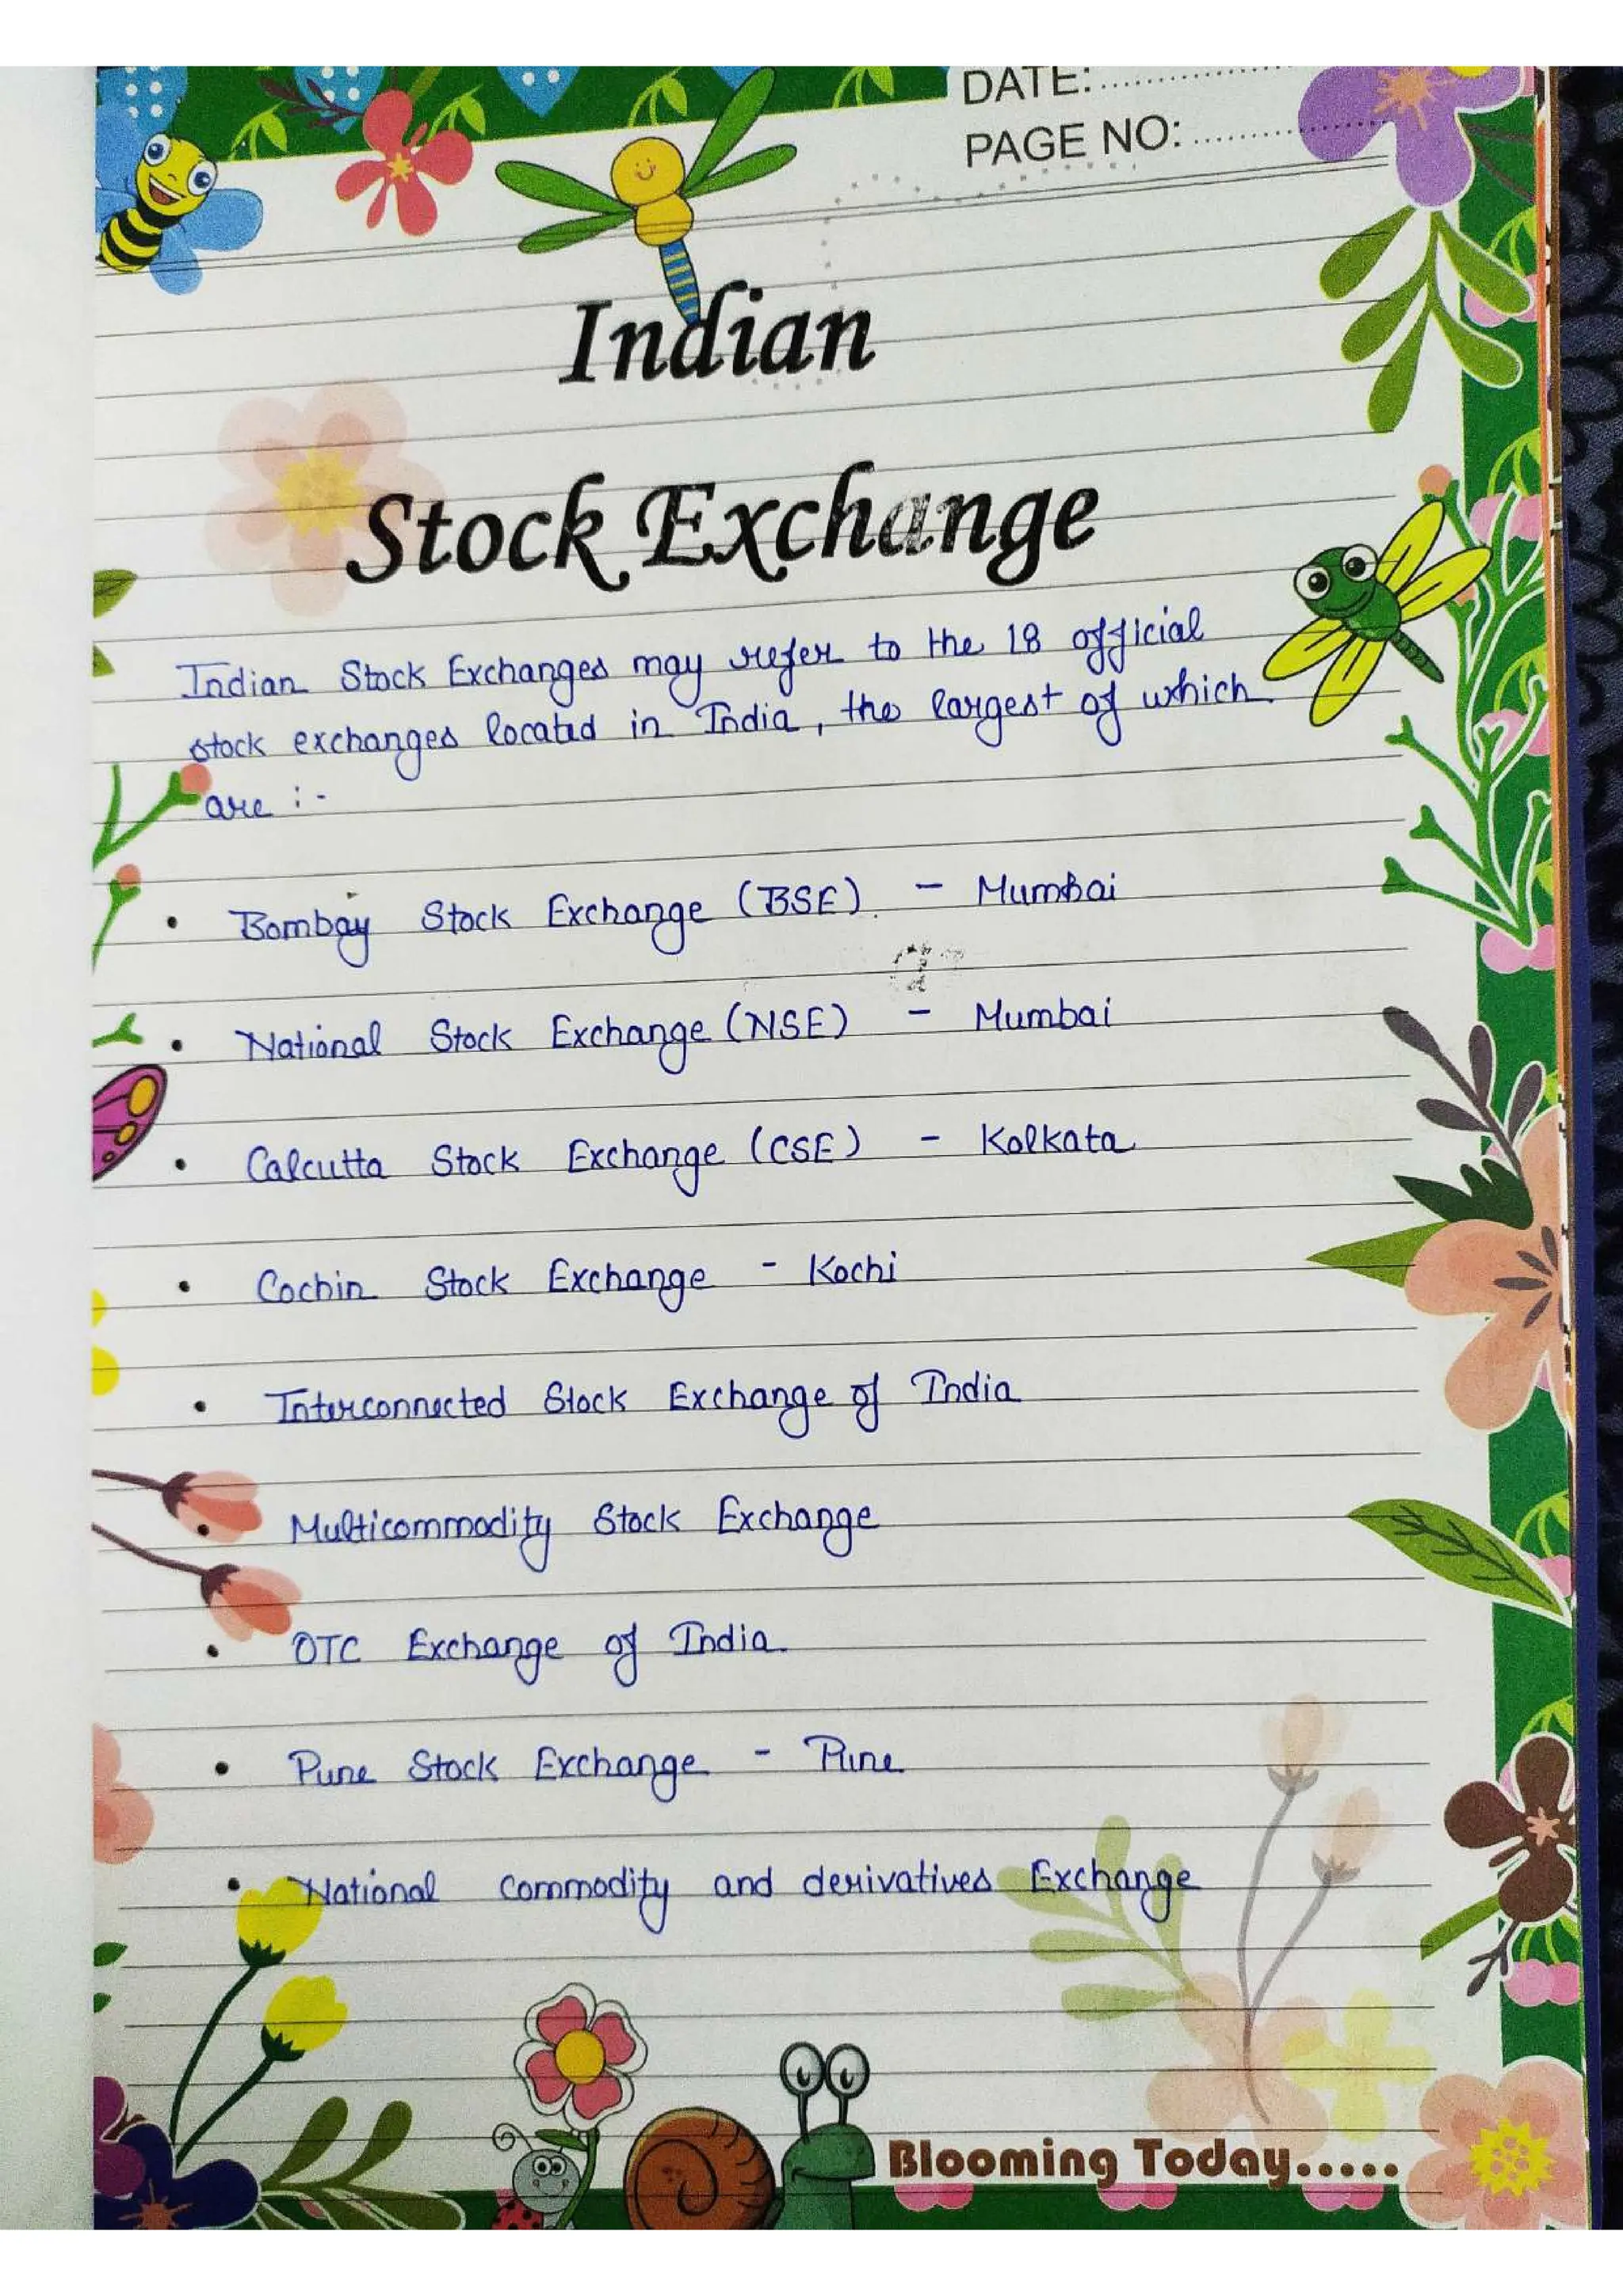 DATE:
PAGE NO:
Indian
Stock Exchange
Indian Stock Exchanges may refer to the 18 official
stock exchanges located in India, the largest of which
are :-
• Bombay Stock Exchange (BSE). - Mumbai
• National Stock Exchange (NSE) - Mumbai
• Calcutta Stock Exchange (CSE) - Kolkata
• Cochin Stock Exchange - Kochi
• Interconnected Stock Exchange of India
• Multicommodity Stock Exchange
• OTC Exchange of India.
• Pune Stock Exchange - Pune
• National commodity and derivatives Exchange
Blooming Today.....